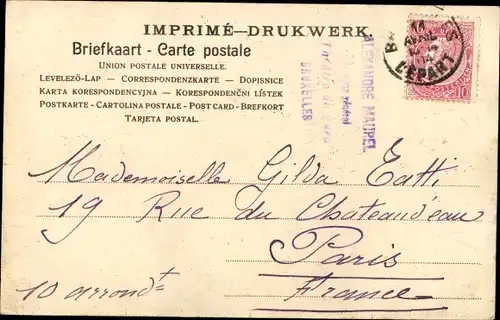 IMPRIMÉ—DRUKWERK.
Briefkaart - Carte postale
UNION POSTALE UNIVERSELLE.
LEVELEZŐ-LAP — CORRESPONDENZKARTE — DOPISNICE
KARTA KORESPONDENCYJNA — KORESPONDENČNI LÍSTEK
POSTKARTE - CARTOLINA POSTALE - POST CARD - BREFKORT
TARJETA POSTAL.
ALEXANDRE MAUPEL
BRUXELLES
11
AVRIL
14
DÉPART
10
Mademoiselle Gilda Eatti
19 Rue du Chateaudeau
Paris
France
10 arrondt